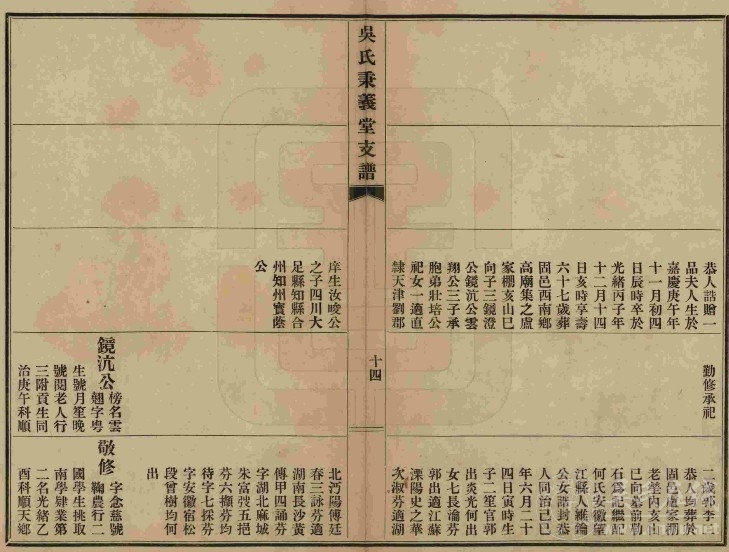 恭人誥贈一
品夫人生於
嘉慶庚午年
十一月初四
日辰時卒於
光緒丙子年
十二月十四
日亥時享壽
六十七歲葬
固邑西南鄉
高廟集之盧
家棚亥山巳
向子三鏡澄
公鏡沆公雲
翔公三子承
胞弟壯培公
祀女一適直
隸天津劉郡
勤修承祀
二歲郭李
恭人均葬於
固邑
老塋內亥山
巳向墓前勒
石為記繼
何氏安徽望
江縣人維鑰
公女誥封恭
人同治己巳
年六月二十
四日寅時生
子二笙官郭
出炎光何出
女七長瀹芬
郭出適江蘇
溧陽史之華
次淑芬適湖
吳氏秉義堂支譜
十四
庠生汝峻公
之子四川大
足縣知縣合
州知州實蔭
公
鏡沆公
榜名雲
翹字粵
生號月笙晚
號閱老人行
三附貢生同
治庚午科順
北沔陽傅廷
春三詠芬適
湖南長沙黃
傳甲四誦芬
字湖北麻城
朱富弢五挹
芬六擷芬均
待字七採芬
字安徽宿松
段曾樹均何
出
敬修
字念慈號
鞠農行二
國學生挑取
南學肄業第
二名光緒乙
酉科順天鄉